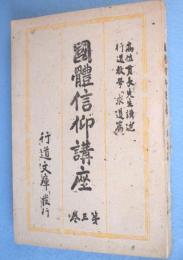 高佐貫長先生講述
行道教学 求道篇
國體信仰講座
第三巻
行道文庫發行